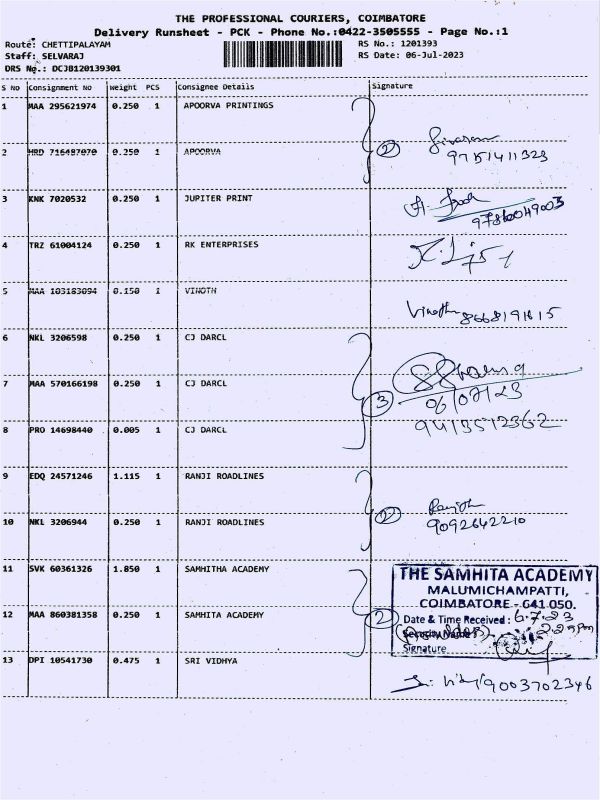 THE PROFESSIONAL COURIERS, COIMBATORE
Delivery Runsheet - PCK - Phone No.:0422-3505555 - Page No.:1
Route: CHETTIPALAYAM
RS No.: 1201393
Staff: SELVARAJ
RS Date: 06-Jul-2023
DRS No.: DCJB120139301
S No Consignment No Weight PCS Consignee Details Signature
1 MAA 295621974 0.250 1 APOORVA PRINTINGS
2 HRD 716487070 0.250 1 APOORVA
2
97151411323
3 KNK 7020532 0.250 1 JUPITER PRINT
9786049003
4 TRZ 61004124 0.250 1 RK ENTERPRISES
5 MAA 103183094 0.150 1 VINOTH
Vinoth 8668191815
6 NKL 3206598 0.250 1 CJ DARCL
7 MAA 570166198 0.250 1 CJ DARCL
3
06/07/23
9413512362
8 PRO 14698440 0.005 1 CJ DARCL
9 EDQ 24571246 1.115 1 RANJI ROADLINES
10 NKL 3206944 0.250 1 RANJI ROADLINES
2
Ranjith
9092642210
11 SVK 60361326 1.850 1 SAMHITHA ACADEMY
12 MAA 860381358 0.250 1 SAMHITA ACADEMY
2
THE SAMHITA ACADEMY
MALUMICHAMPATTI,
COIMBATORE - 641 050.
Date & Time Received : 6.7.23
Security Name
Signature
13 DPI 10541730 0.475 1 SRI VIDHYA
9003702346